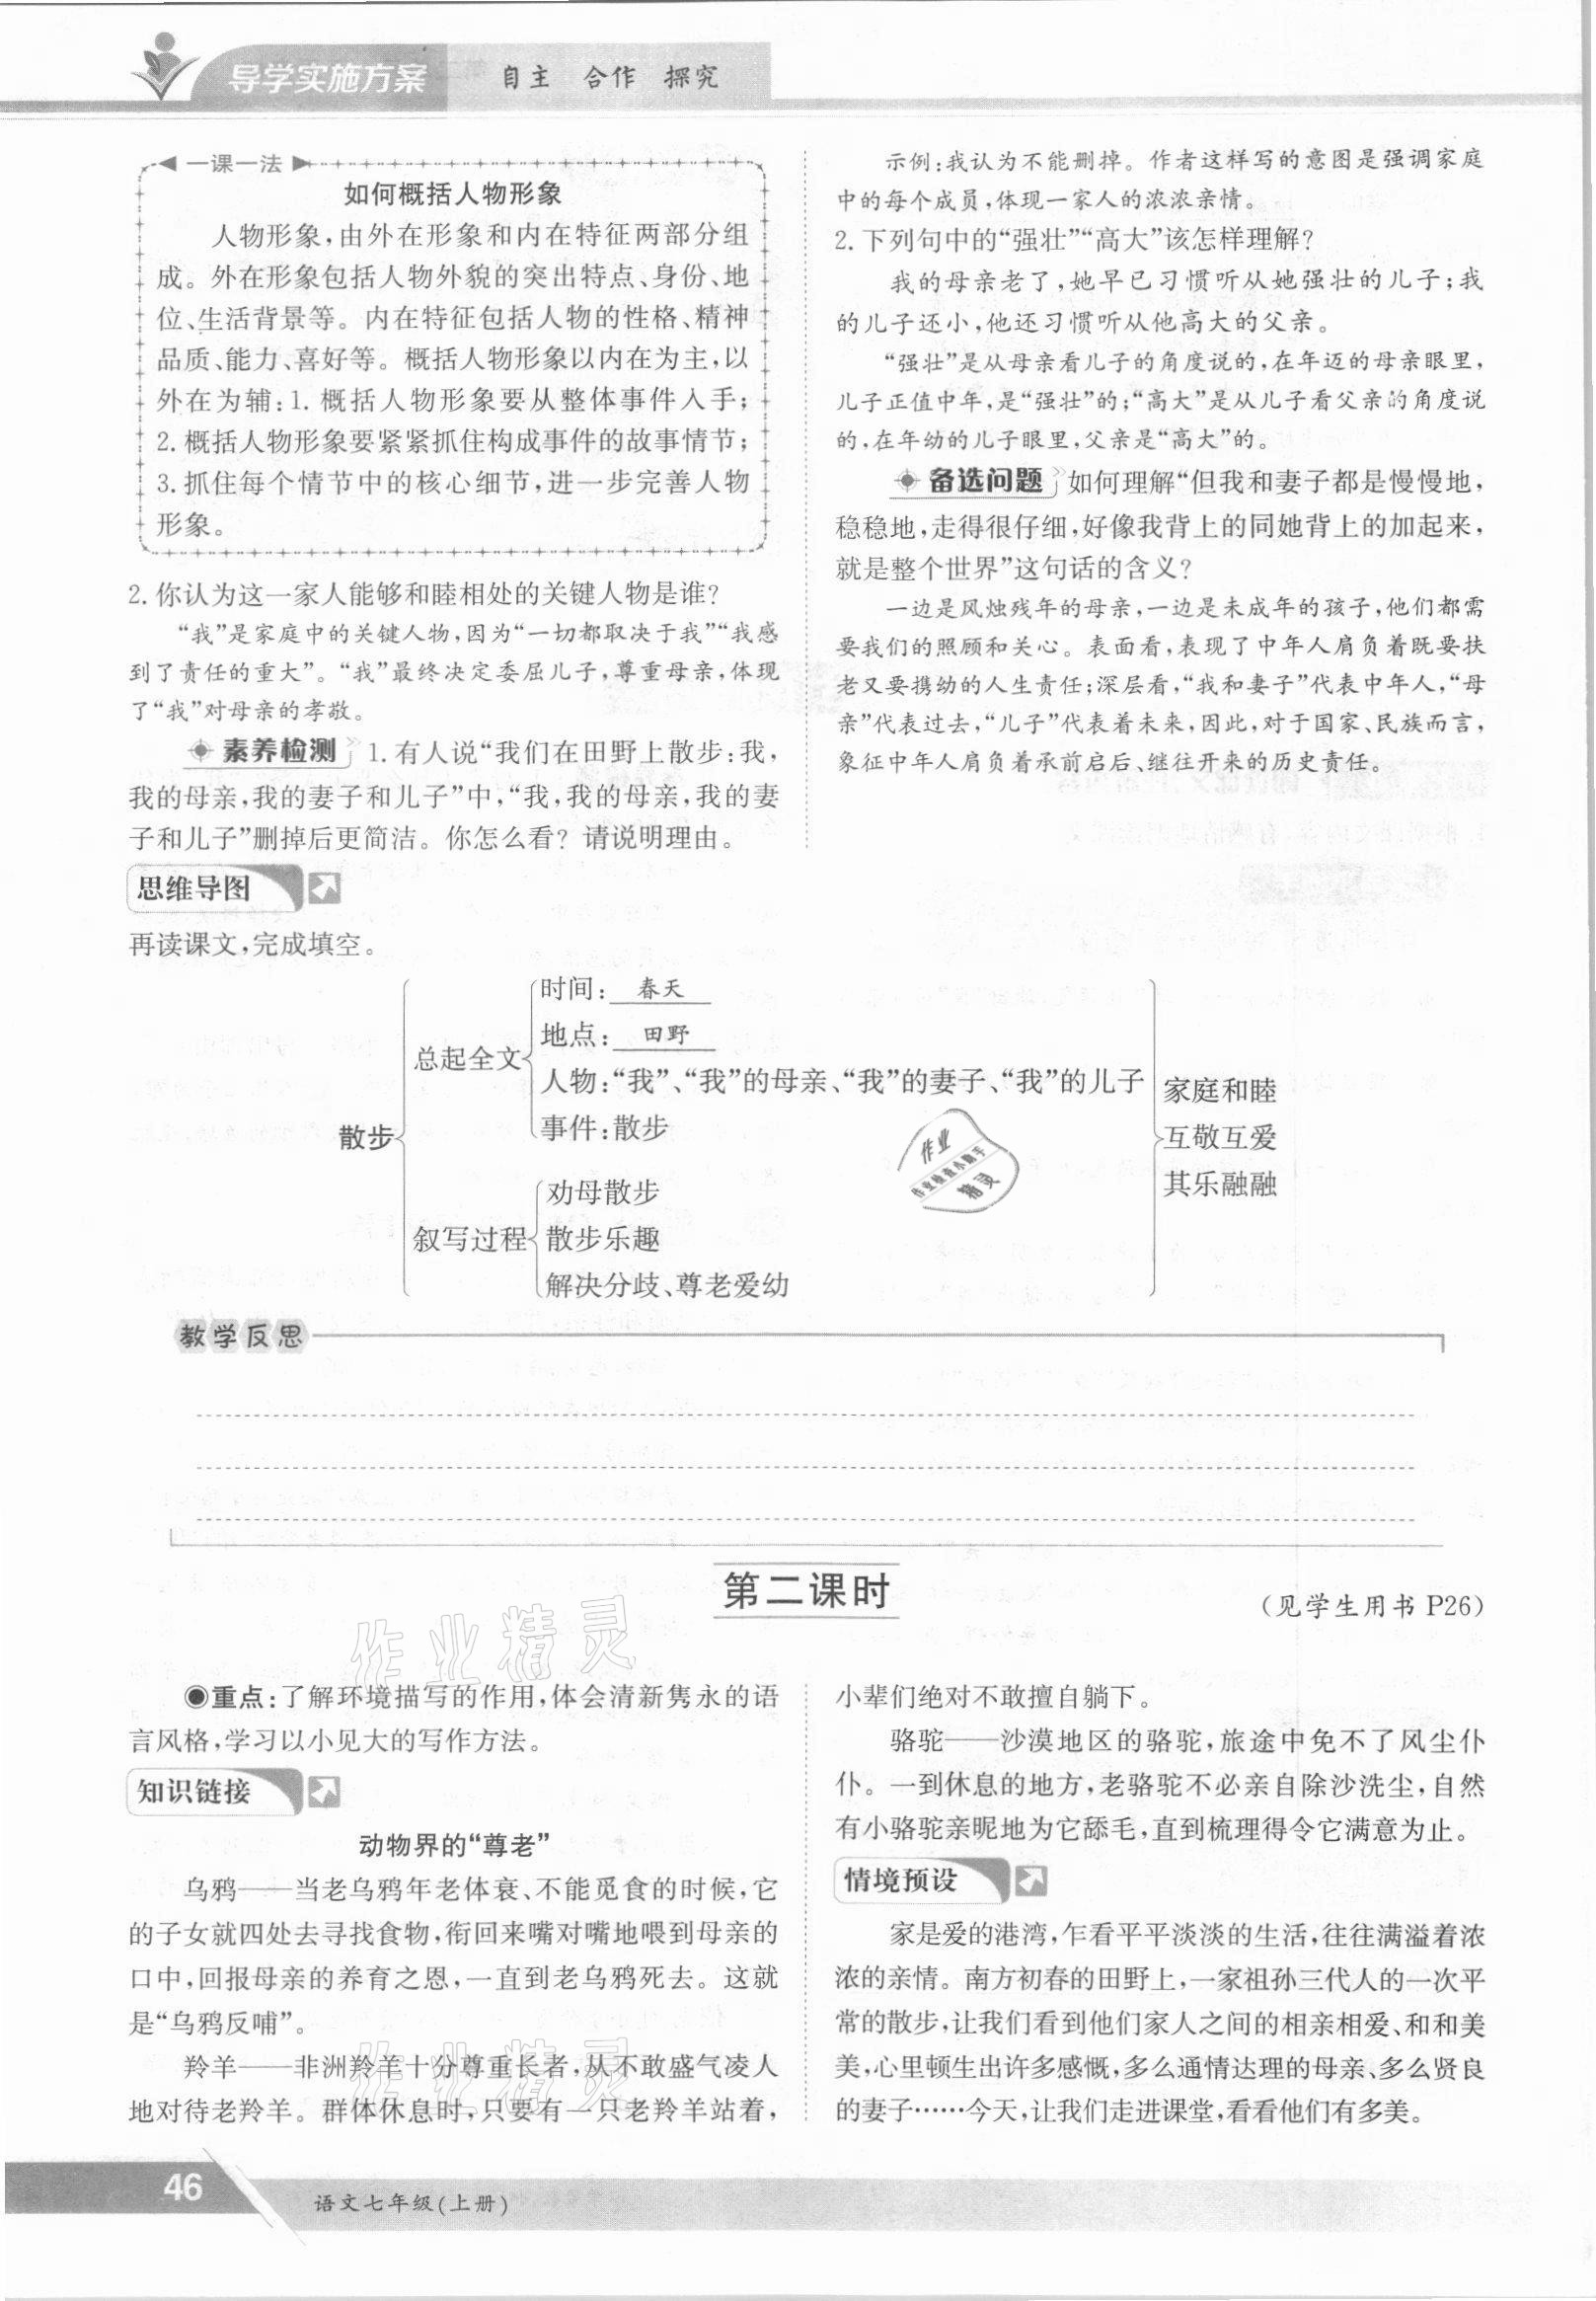 导学实施方案 自主 合作 探究
一课一法
如何概括人物形象
人物形象,由外在形象和内在特征两部分组
成。外在形象包括人物外貌的突出特点、身份、地
位、生活背景等。内在特征包括人物的性格、精神
品质、能力、喜好等。概括人物形象以内在为主,以
外在为辅:1. 概括人物形象要从整体事件入手;
2. 概括人物形象要紧紧抓住构成事件的故事情节;
3. 抓住每个情节中的核心细节,进一步完善人物
形象。
2. 你认为这一家人能够和睦相处的关键人物是谁?
“我”是家庭中的关键人物,因为“一切都取决于我”“我感
到了责任的重大”。“我”最终决定委屈儿子,尊重母亲,体现
了“我”对母亲的孝敬。
素养检测 1. 有人说“我们在田野上散步:我,
我的母亲,我的妻子和儿子”中,“我,我的母亲,我的妻
子和儿子”删掉后更简洁。你怎么看?请说明理由。
示例:我认为不能删掉。作者这样写的意图是强调家庭
中的每个成员,体现一家人的浓浓亲情。
2. 下列句中的“强壮”“高大”该怎样理解?
我的母亲老了,她早已习惯听从她强壮的儿子;我
的儿子还小,他还习惯听从他高大的父亲。
“强壮”是从母亲看儿子的角度说的,在年迈的母亲眼里,
儿子正值中年,是“强壮”的;“高大”是从儿子看父亲的角度说
的,在年幼的儿子眼里,父亲是“高大”的。
备选问题 如何理解“但我和妻子都是慢慢地,
稳稳地,走得很仔细,好像我背上的同她背上的加起来,
就是整个世界”这句话的含义?
一边是风烛残年的母亲,一边是未成年的孩子,他们都需
要我们的照顾和关心。表面看,表现了中年人肩负着既要扶
老又要携幼的人生责任;深层看,“我和妻子”代表中年人,“母
亲”代表过去,“儿子”代表着未来,因此,对于国家、民族而言,
象征中年人肩负着承前启后、继往开来的历史责任。
思维导图
再读课文,完成填空。
散步
总起全文
时间: 春天
地点: 田野
人物:“我”、“我”的母亲、“我”的妻子、“我”的儿子
事件:散步
叙写过程
劝母散步
散步乐趣
解决分歧、尊老爱幼
家庭和睦
互敬互爱
其乐融融
作业
作业检查小助手
精灵
教学反思
第二课时
(见学生用书 P26)
作业精灵
●重点:了解环境描写的作用,体会清新隽永的语
言风格,学习以小见大的写作方法。
知识链接
动物界的“尊老”
乌鸦——当老乌鸦年老体衰、不能觅食的时候,它
的子女就四处去寻找食物,衔回来嘴对嘴地喂到母亲的
口中,回报母亲的养育之恩,一直到老乌鸦死去。这就
是“乌鸦反哺”。
羚羊——非洲羚羊十分尊重长者,从不敢盛气凌人
地对待老羚羊。群体休息时,只要有一只老羚羊站着,
作业精灵
小辈们绝对不敢擅自躺下。
骆驼——沙漠地区的骆驼,旅途中免不了风尘仆
仆。一到休息的地方,老骆驼不必亲自除沙洗尘,自然
有小骆驼亲昵地为它舔毛,直到梳理得令它满意为止。
情境预设
家是爱的港湾,乍看平平淡淡的生活,往往满溢着浓
浓的亲情。南方初春的田野上,一家祖孙三代人的一次平
常的散步,让我们看到他们家人之间的相亲相爱、和和美
美,心里顿生出许多感慨,多么通情达理的母亲、多么贤良
的妻子……今天,让我们走进课堂,看看他们有多美。
46
语文七年级(上册)